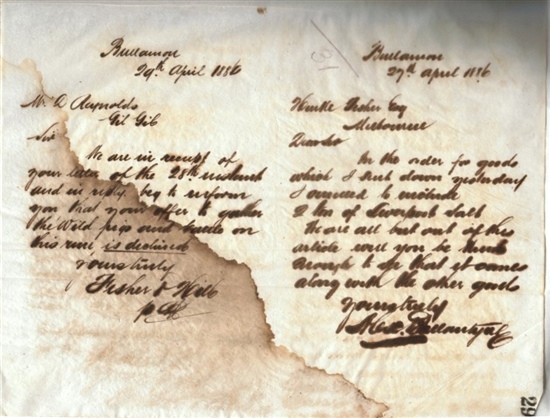 Bullamon
29th April 1886
Mr A Reynolds
Gil Gil
Sir
We are in receipt of
your letter of the 25th instant
and in reply beg to inform
you that your offer to gather
the Wild pigs and cattle on
this run is declined
Yours truly
Fisher &
31
Bullamon
27th April 1886
Fisher Esq
Melbourne
Dear Sir
In the order for goods
which I sent down yesterday
I omitted to include
2 Ton of Liverpool Salt
We are all but out of this
article will you be kind
enough to see that it comes
along with the other goods
Yours truly
29